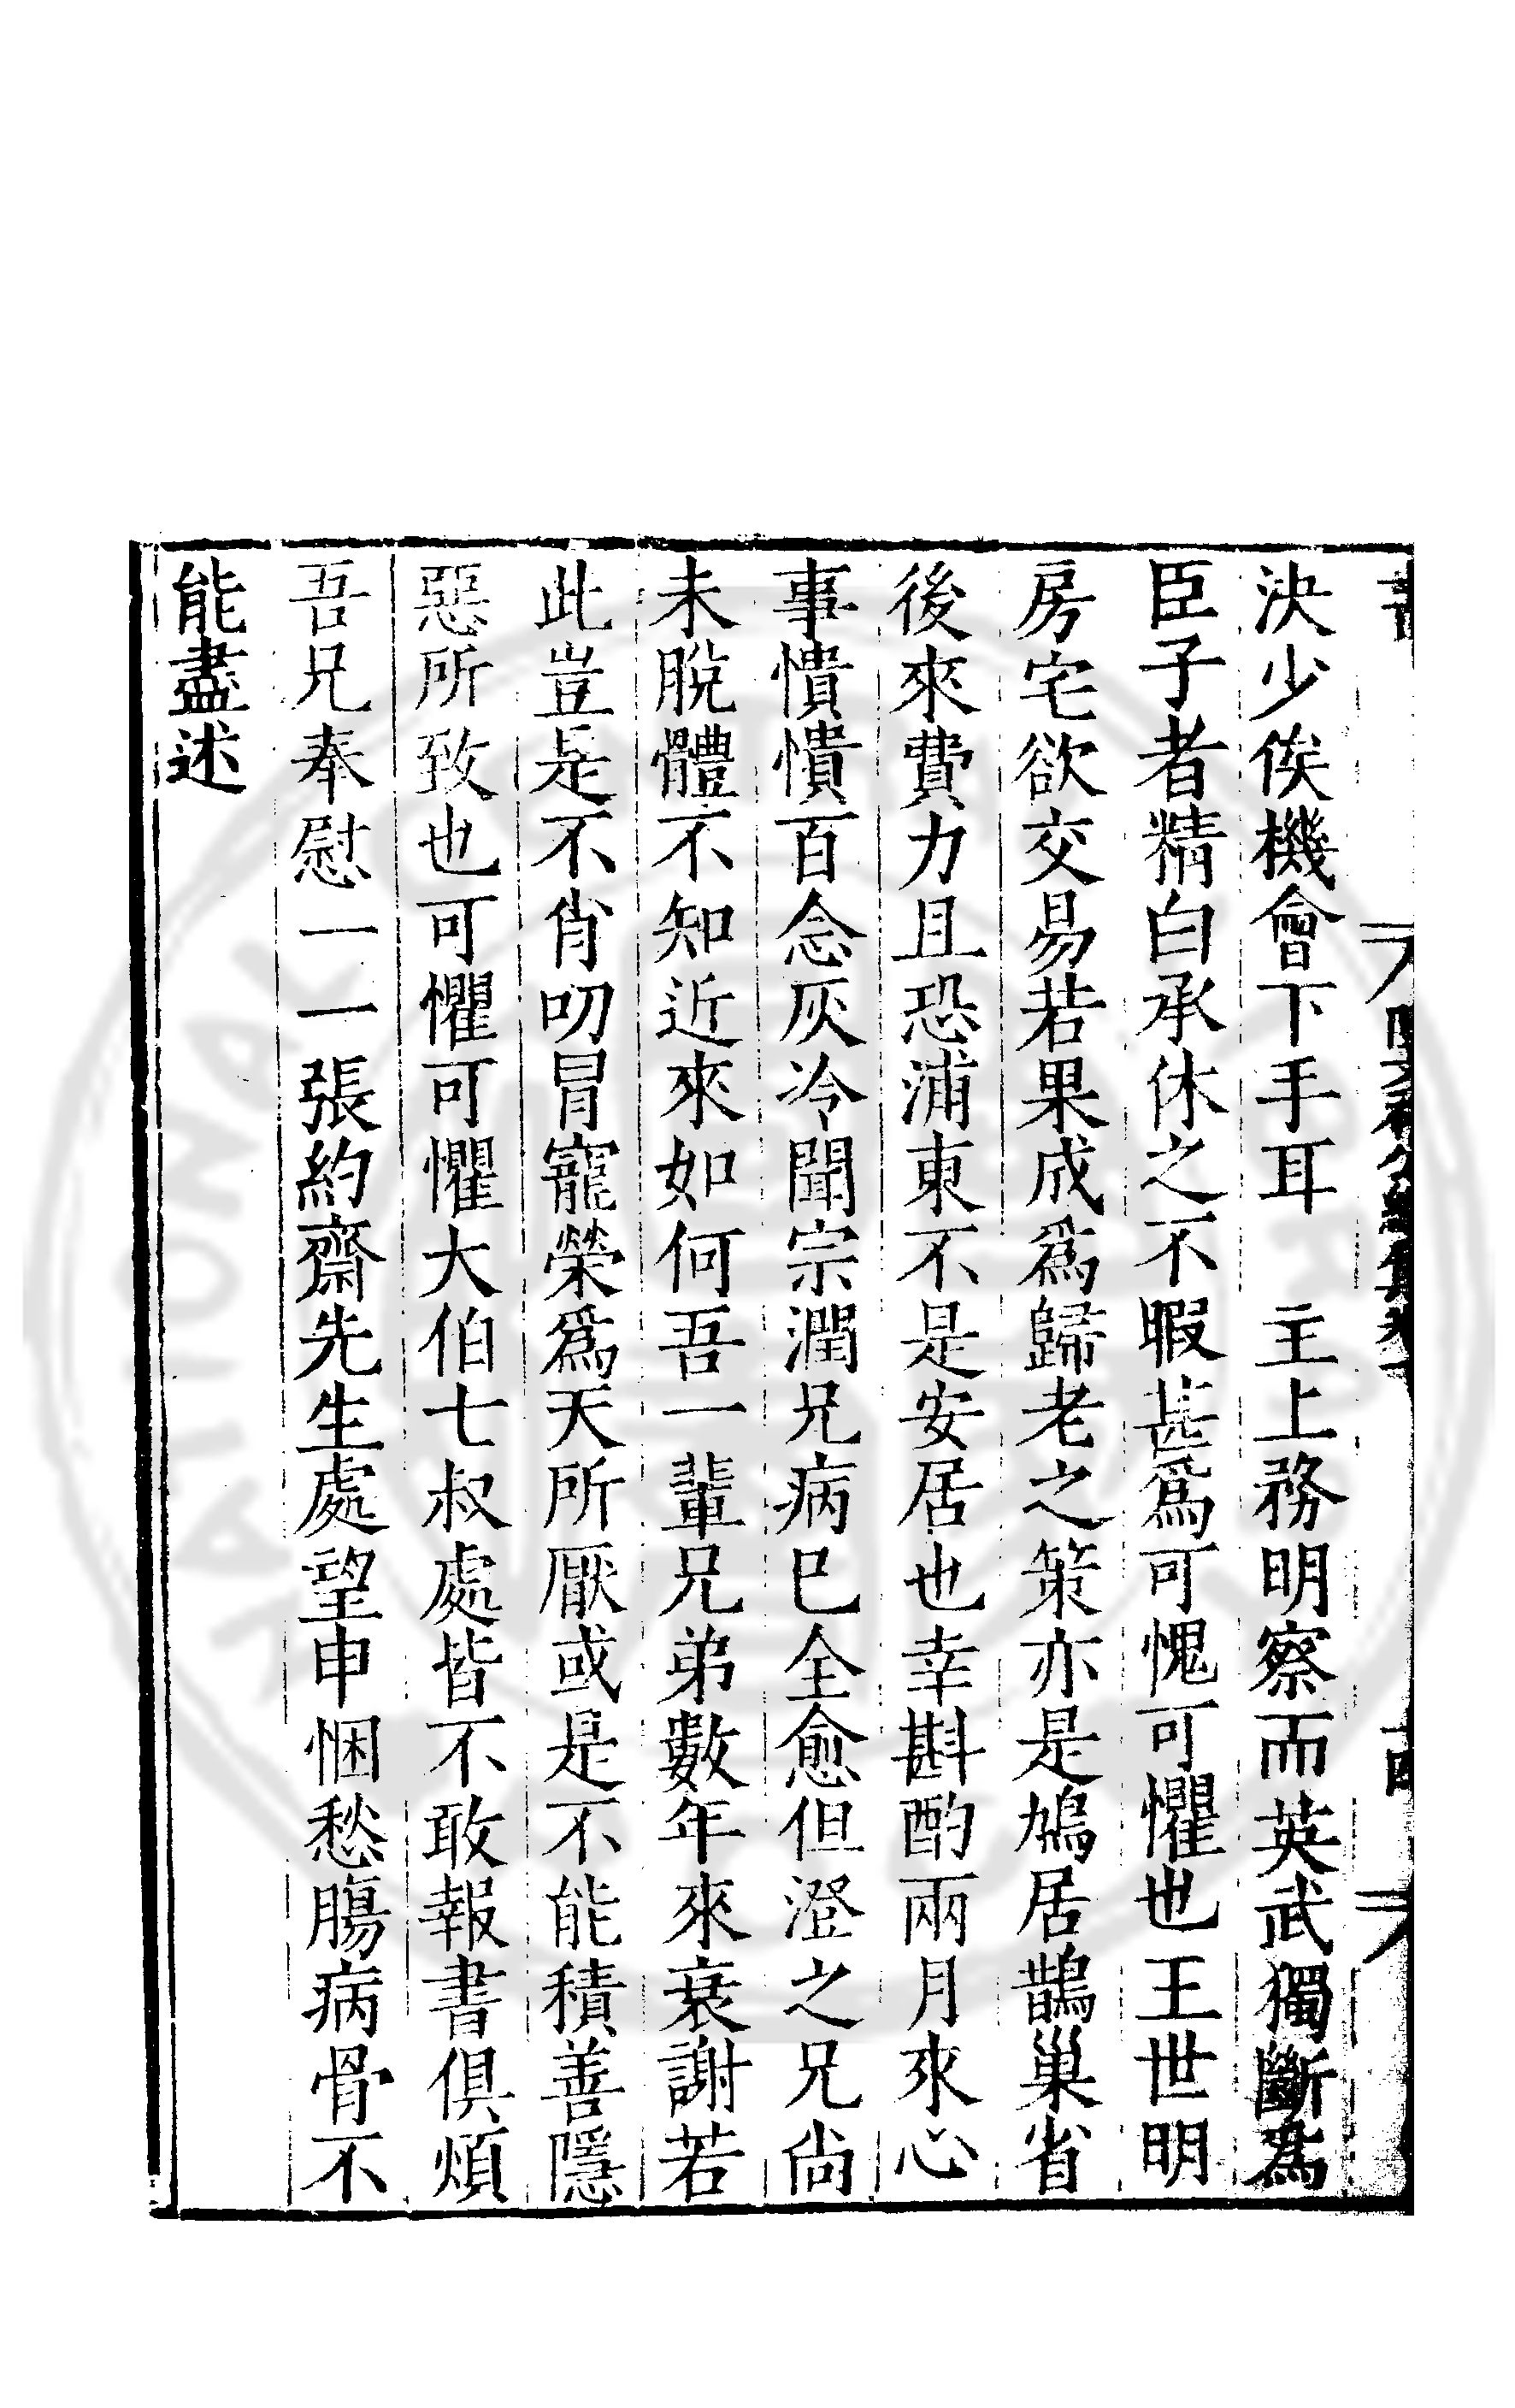 決少俟機會下手耳　主上務明察而英武獨斷爲
臣子者精白承休之不暇甚爲可愧可懼也王世明
房宅欲交易若果成爲歸老之策亦是鳩居鵲巢省
後來費力且恐浦東不是安居也幸斟酌兩月來心
事憒憒百念灰冷聞宗潤兄病巳全愈但澄之兄尚
未脫體不知近來如何吾一輩兄弟數年來衰謝若
此豈是不肖叨冒寵榮爲天所厭或是不能積善隱
惡所致也可懼可懼大伯七叔處皆不敢報書俱煩
吾兄奉慰一一張約齋先生處望申悃愁腸病骨不
能盡述